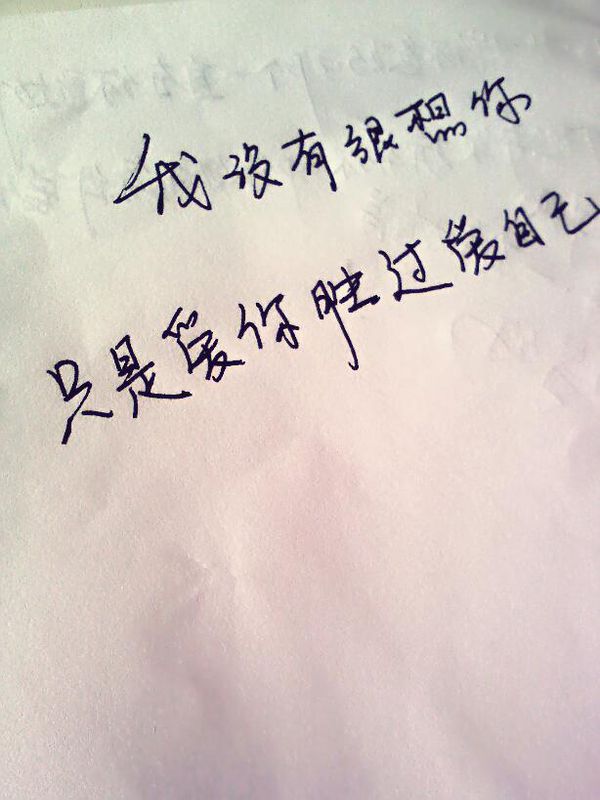 我没有很想你
只是爱你胜过爱自己